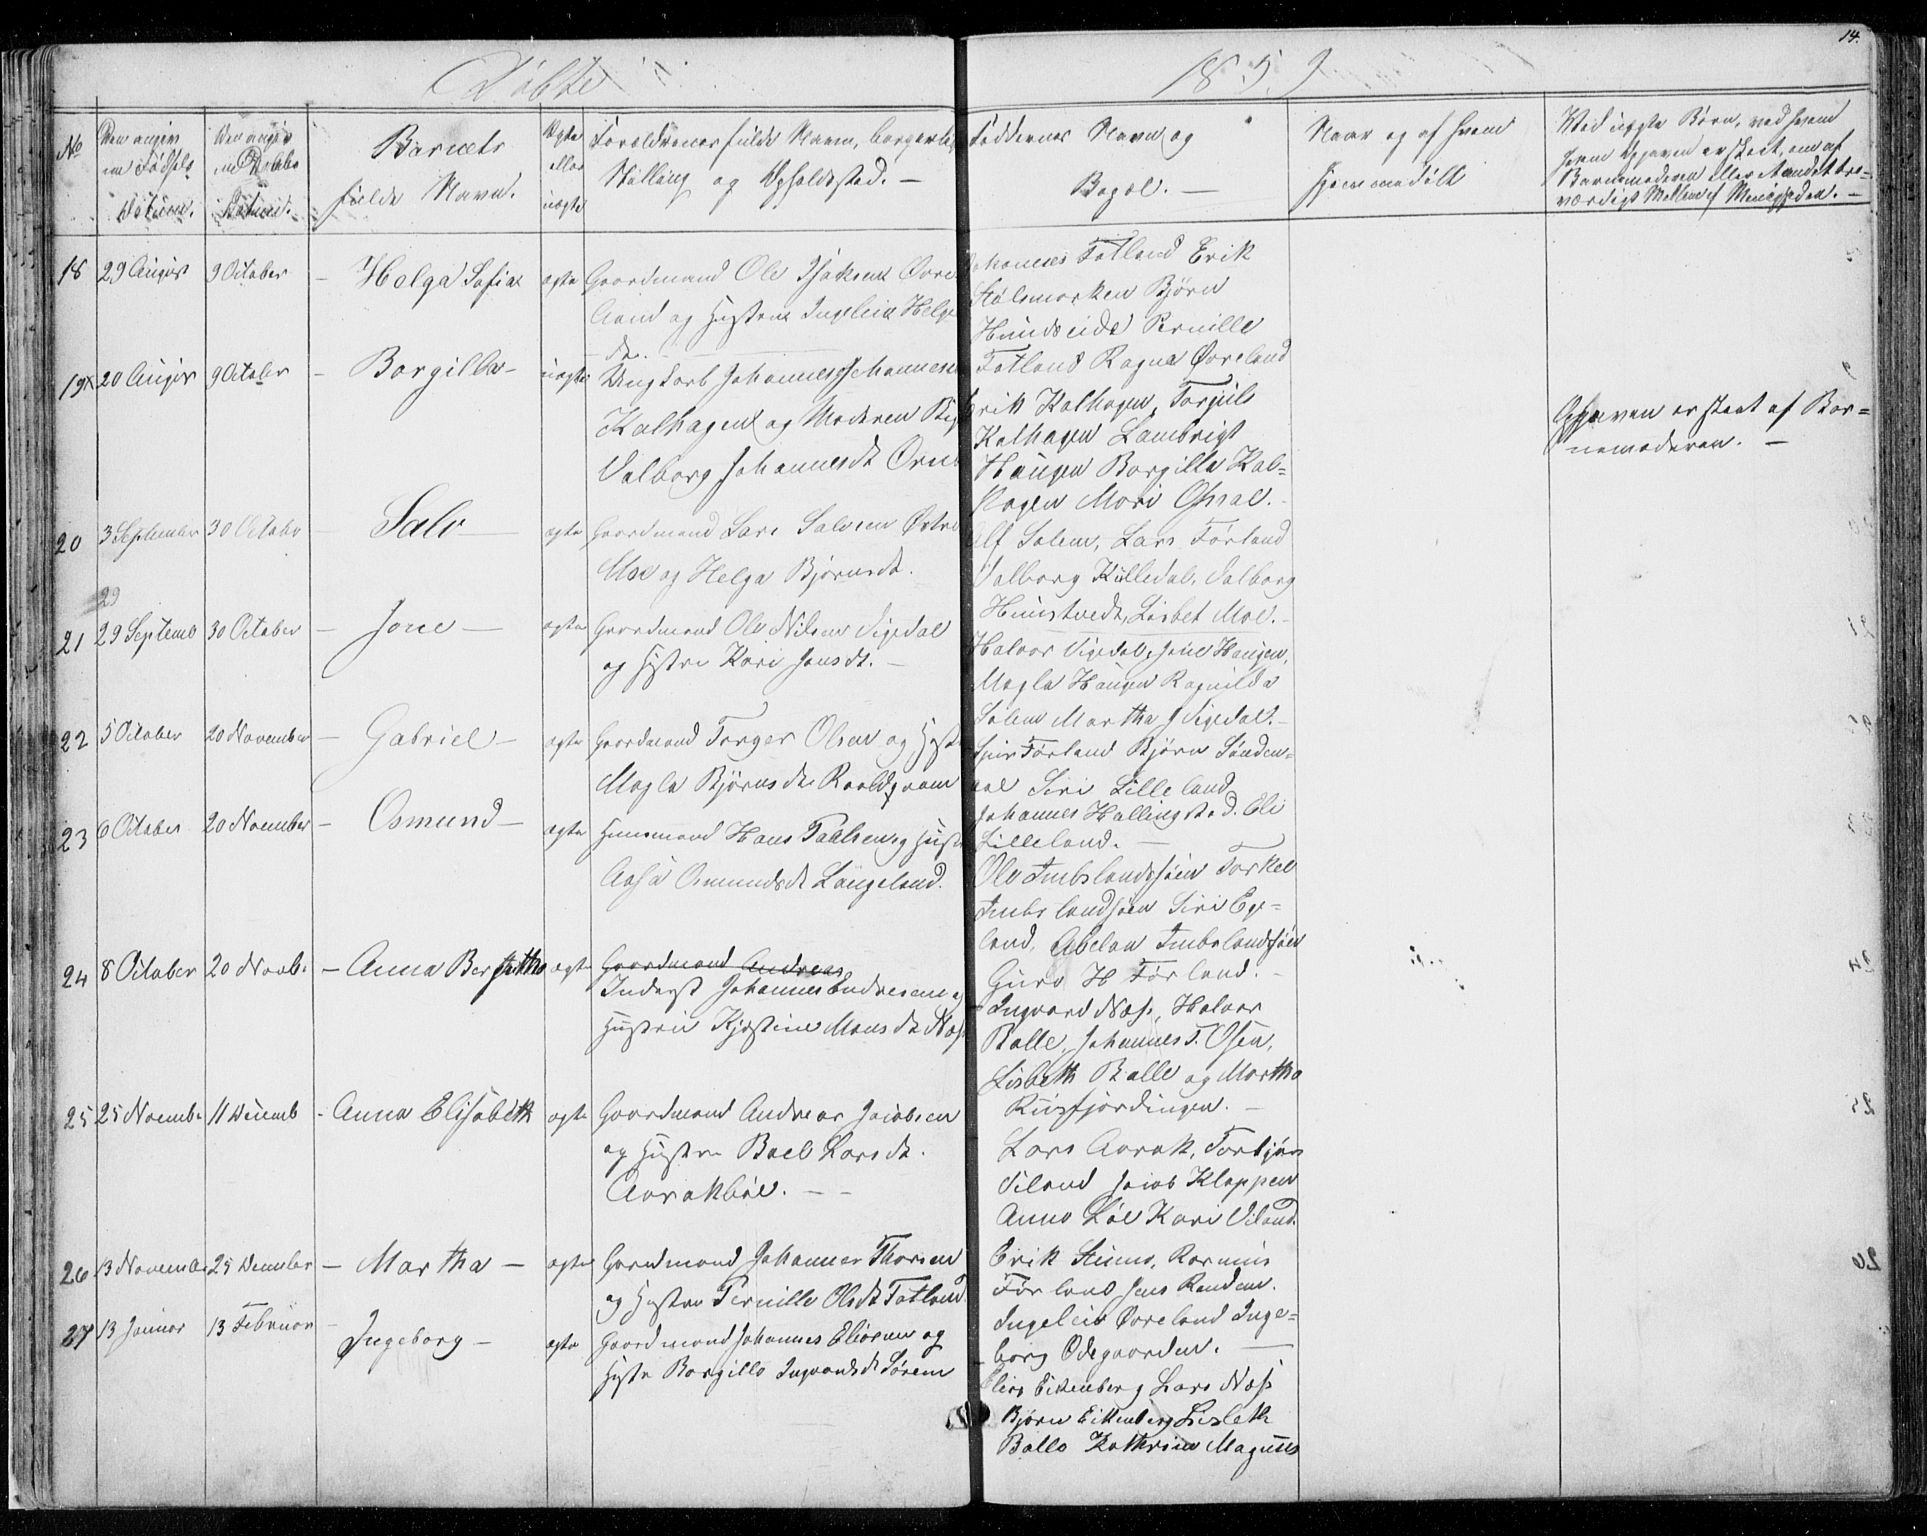 14.
Døbte 1859
No
Den angivne Fødsels Datum.
Den angivne Daabs Datum.
Barnets
fulde Navn.
Ægte eller uægte
Forældrenes fulde Navn, borgerlige
Stilling og Opholdssted. —
Faddernes Navn og
Bopæl. —
Naar og af hvem
hjemmedøbt
Ved uægte Børn, ved hvem
Barnemoderen eller Andet tro-
værdigt Mellem af Menigheden. —
18 29 August 9 October — Helga Sofia ægte Gaardmand Ole Isaksen Øvre
land og Hustru Ingeleiv Helge
dt.
Johannes Fatland Erik
Stølsmarken Bjørn
Hundseide Pernille
Fatland Ragna Øvreland
19 20 August 9 October — Borgilla — uægte Ungkarl Johannes Johannesen
Kalhagen og Moderen Pige
Valborg Johannesdt
Erik Kalhagen, Torjuls
Kalhagen Lambrigt
Haugen Borgilla Kal-
hagen Mari Osnal. -
Opgaven er skeet af Bar-
nemoderen. —
20 3 September 30 October — Salv — ægte Gaardmand Lars Salvesen
Moe og Helga Bjørnsdt.
Alf Solem, Lars Førland
Valborg Kulledal, Valborg
Huustvedt, Lisbet Moe. -
29
21 29 Septemb 30 October — Jone — ægte Gaardmand Ole Nilsen Vigedal
og Hustru Kari Jonsdt. —
Halvor Vigedal, Jone Haugen,
Magla Haugen Ragnilda
Solem Martha J Vigedal. -
22 5 October 20 November — Gabriel — ægte Gaardmand Torger Olsen og Hustru
Magla Bjørnsdtr Raaldqvam
Sjur Førland Bjørn Sønden-
aal Siri Lilleland
Johannes Hallingstad. Eli
Lilleland. —
23 6 October 20 November — Osmund — ægte Huusmand Hans Paalsen og Hustr
Aasa Osmundsdt Langeland.
Ole Imbslandsjøen Torkel
Imbslandsjøen Siri Ege-
land, Abelon Imbslandsjøen
Guro H Førland. -
24 8 October 20 Novb. — Anna Berthe ægte Gaardmand Andreas
Inderst Johannes Endresen og
Hustru Kjistine Monsdt Næss
Ingvard Næss, Halvor
Balle, Johannes T. Osen,
Lisbeth Balle og Martha
Ruusfjordingen. —
25 25 Novemb. 11 Decemb - Anna Elisabeth ægte Gaardmand Andreas Jacobsen
og Hustru Boel Larsdt.
Aarakbøe. — -
Lars Aarak, Torbjørn
Viland Jacob Kloppen
Anna Løe Kari Viland.
26 13 November 25 December — Martha — ægte Gaardmand Johannes Thorsen
og Hustru Pernille Olsdt Fatland
Erik Stumo, Rasmus
Førland Jens Randen.
Ingeleiv Øvreland Inge-
borg Ødegaarden. —
27 13 Januar 13 Februar — Ingeborg — ægte Gaardmand Johannes Eliasen og
Hustr Borgilla Ingvardsdt Sørem
Elias Eikenberg Lars Næss
Bjørn Eikenberg Lisbeth
Balle Kathrine Magnus